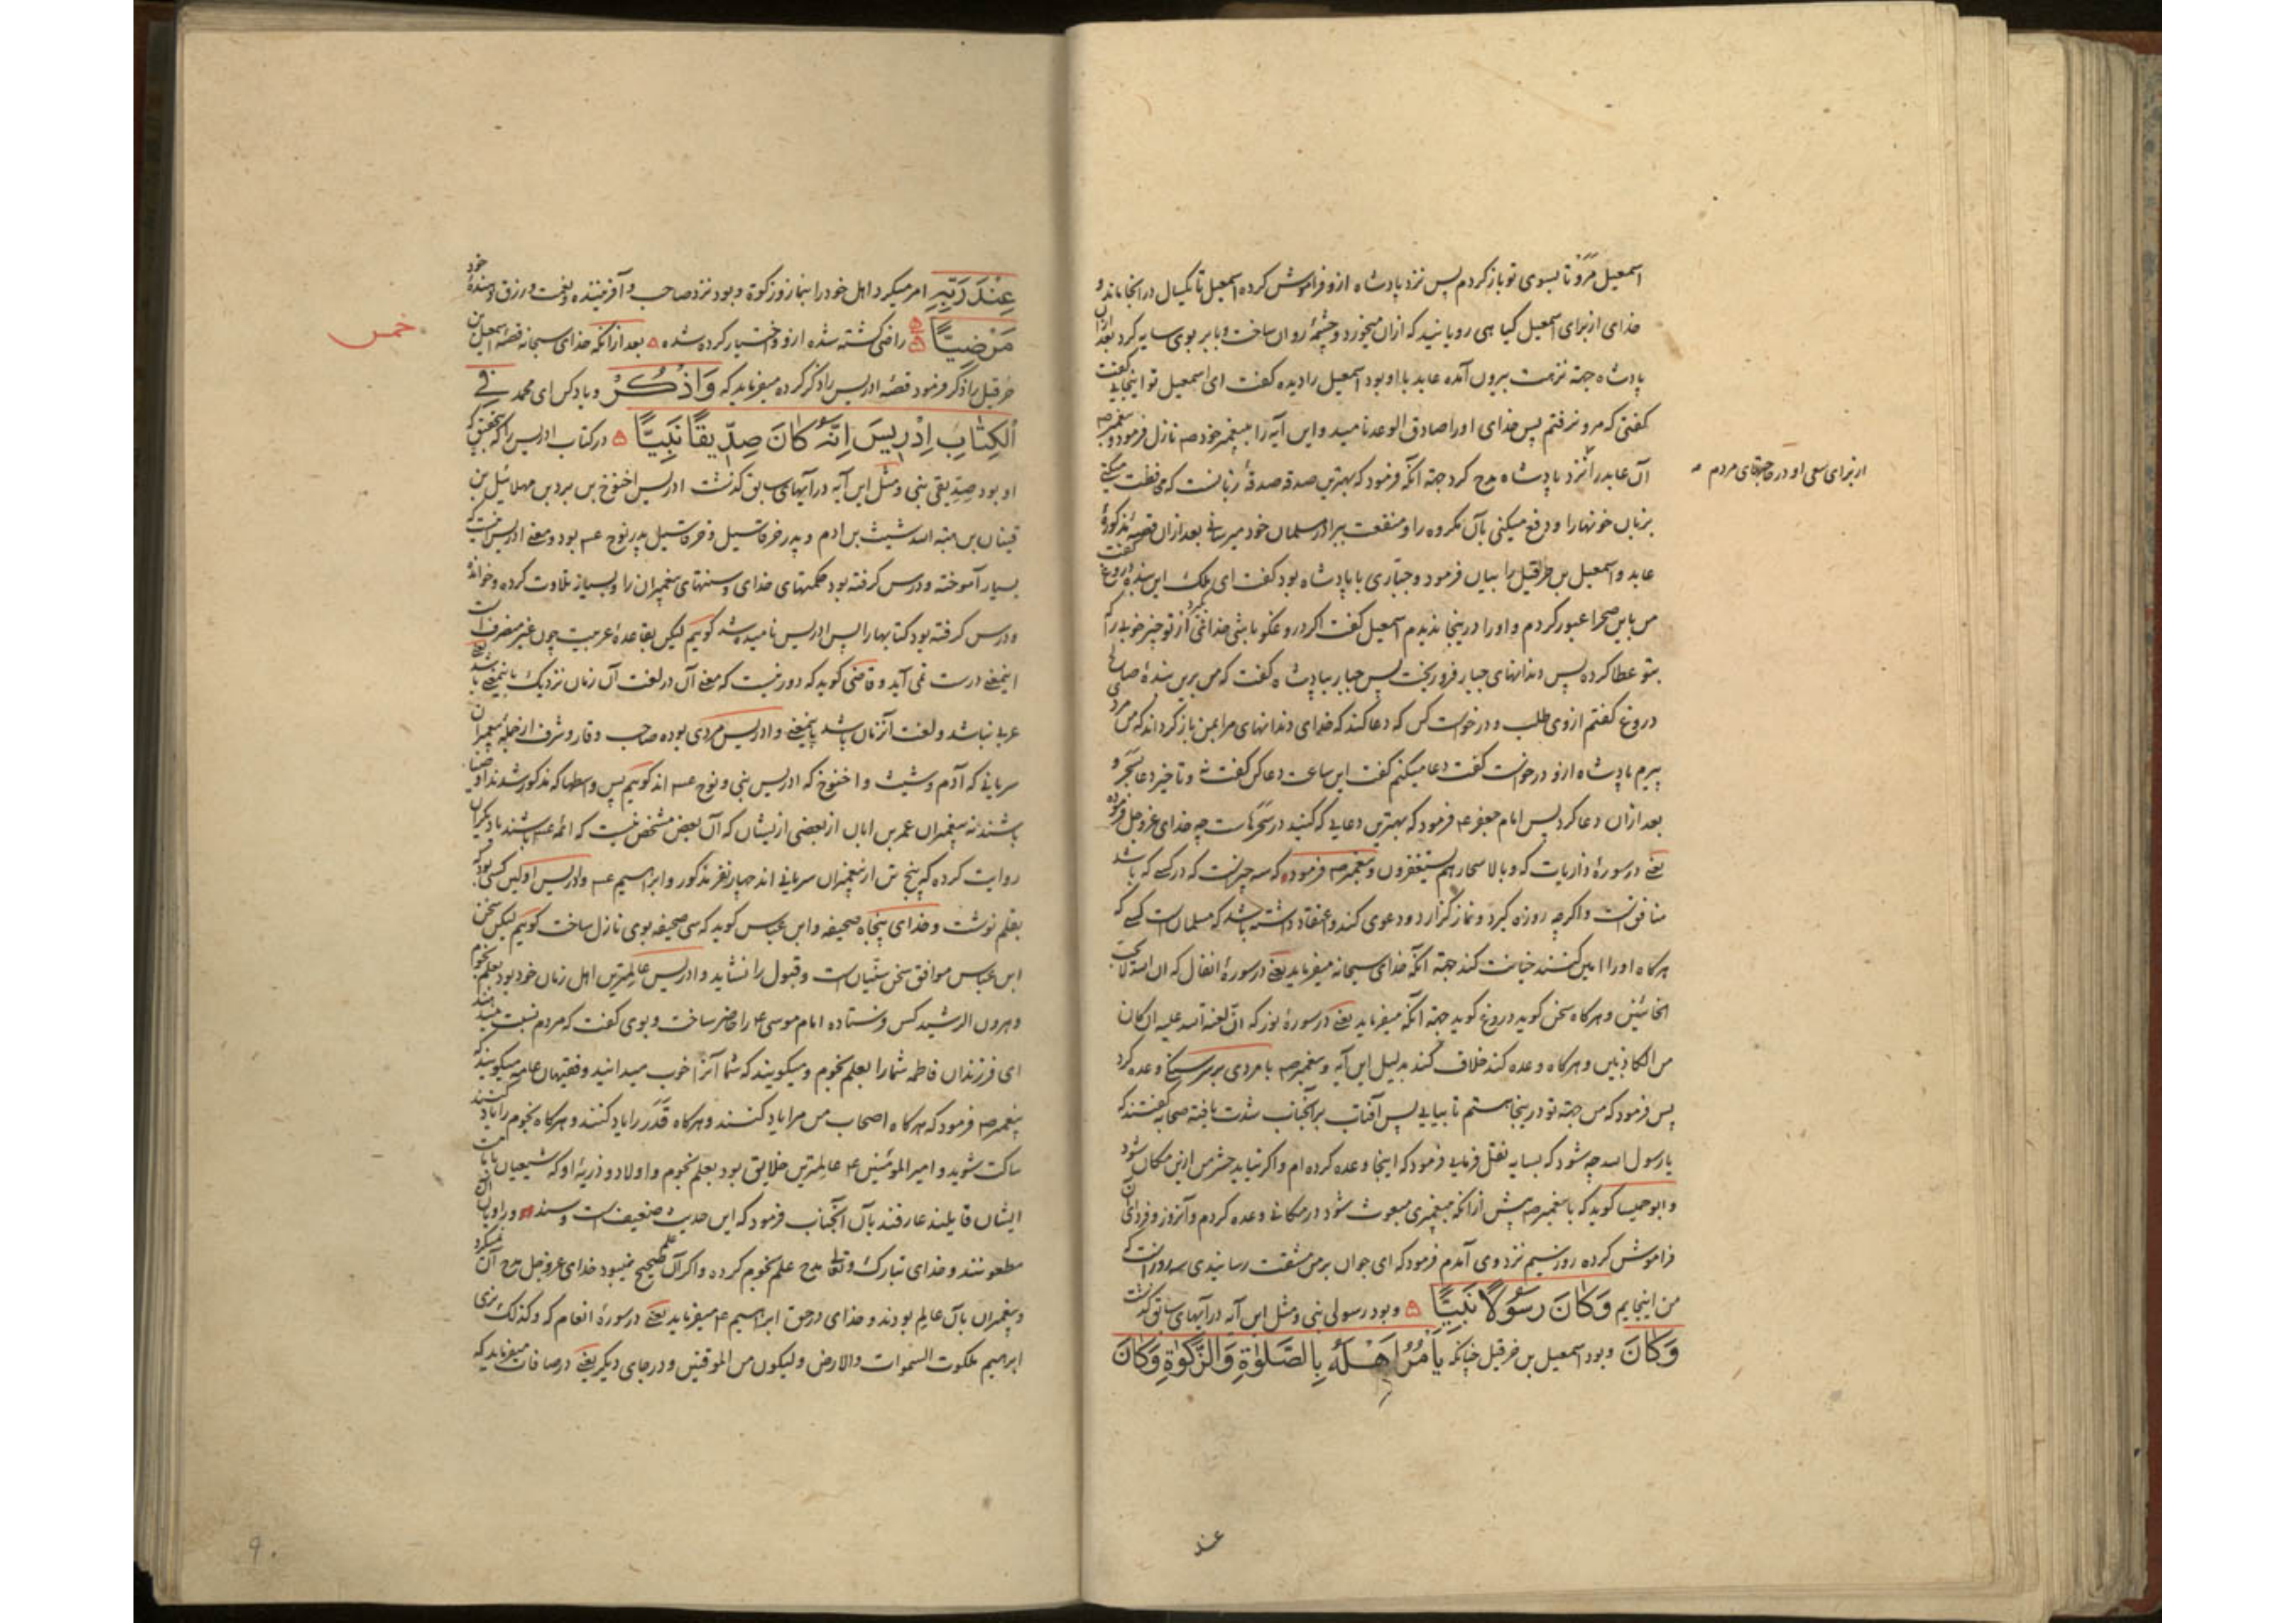 اسمعیل مرو تا بسوی تو بازگردم پس نزد پادشاه ازو فراموش کرده اسمعیل تا یکسال در انجا ماند و
خدای از برای اسمعیل گیاهی رویانید که ازان میخورد و چشمهٔ روان ساخت و بابر بوی سایه کرد بعد ازان
پادشاه جهة نزهت بیرون آمده عابد با او بود اسمعیل را دیده گفت ای اسمعیل تو اینجایی گفت
گفتی که مرو نرفتم پس خدای او را صادق الوعد نامید و این آیه را به پیغمبر خود صم نازل فرمود و پیغمبر صم
آن عابد را نزد پادشاه مدح کرد جهة آنکه فرمود که بهترین صدقه صدقهٔ زبانست که محافظت میکنی
از برای سعی او در حاجتهای مردم
بزبان خونها را و دفع میکنی بآن مکروه را و منفعت ببرادر مسلمان خود میرسانی بعد ازان قصهٔ مذکورهٔ
عابد و اسمعیل بن حزقیل را بیان فرمود و جباری با پادشاه بود گفت ای ملک این بنده دروغ گفت
من باین صحرا عبور کردم و او را درینجا ندیدم اسمعیل گفت اگر دروغگو باشی خدای از تو چیز خوبی را که
بتو عطا کرده پس دندانهای جبار فرو ریخت پس جبار بپادشاه گفت که من برین بندهٔ صالح
دروغ گفتم ازوی طلب و درخواست کن که دعا کند که خدای دندانهای مرا بمن باز گرداند که من مرد
پیرم پادشاه ازو درخواست گفت دعا میکنم گفت این ساعت دعا کن گفت نه و تاخیر دعا بسحر و
بعد ازان دعا کرد پس امام جعفر عم فرمود که بهترین دعایی که کنید در سحرهاست چه خدای عز و جل فرموده
یعنی در سورهٔ ذاریات که و بالاسحار هم یستغفرون و پیغمبر صم فرموده که سه چیزست که در کسی که باشد
منافق است و اگرچه روزه گیرد و نماز گزارد و دعوی کند و اعتقاد داشته باشد که مسلمان است کسی که
هرگاه او را امین کنند خیانت کند جهة آنکه خدای سبحانه میفرماید یعنی در سورهٔ انفال که ان الله لا یحب
الخائنین و هرگاه سخن گوید دروغ گوید جهة آنکه میفرماید یعنی در سورهٔ نور که ان لعنة الله علیه ان کان
من الکاذبین و هرگاه وعده کند خلاف کند بدلیل این آیه و پیغمبر صم با مردی بر سر سنگی وعده کرد
پس فرمود که من جهة تو درینجا هستم تا بیایی پس آفتاب بر آنجناب شدت یافته صحابه گفتند که
یا رسول الله چه شود که بسایه نقل فرمایی فرمود که اینجا وعده کرده ام و اگر نیاید حشر من ازین مکان شود
و ابو حمیسا گوید که با پیغمبر صم پیش ازانکه بپیغمبری مبعوث شود در مکانی وعده کردم و آنروز و فردای آن
فراموش کرده روز سیم نزد وی آمدم فرمود که ای جوان بر من مشقت رسانیدی سه روز است که
من اینجایم وَكَانَ رَسُولًا نَبِيًّا و بود رسولی نبی و مثل این آیه در آیهای سابق گذشت
وَكَانَ و بود اسمعیل بن حزقیل چنانکه يَأْمُرُ أَهْلَهُ بِالصَّلٰوةِ وَالزَّكٰوةِ وَكَانَ
عند
عِنْدَ رَبِّهِ امر میکرد اهل خود را بنماز و زکوة و بود نزد صاحب و آفریننده و نعمت و رزق دهندهٔ خود
مَرْضِيًّا راضی گشته شده ازو و اختیار کرده شده بعد ازانکه خدای سبحانه قصهٔ اسمعیل بن
خمس
حزقیل را ذکر فرمود قصهٔ ادریس را ذکر کرده میفرماید که وَاذْكُرْ و یاد کن ای محمد فِي
الْكِتَابِ إِدْرِيسَ إِنَّهُ كَانَ صِدِّيقًا نَبِيًّا در کتاب ادریس را که بتحقیق که
او بود صدیقی نبی و مثل این آیه در آیهای سابق گذشت ادریس اخنوخ بن برد بن مهلائیل بن
قینان بن هبة الله شیث بن ادم و پدر خرقاسیل و خرقاسیل پدر نوح عم بود و معنی ادریس انست که
بسیار آموخته و درس گرفته بود حکمتهای خدای و سنتهای پیغمبران را و بسیار تلاوت کرده و خوانده
و درس گرفته بود کتابها را پس ادریس نامیده شد گویم لیکن بقاعدهٔ عربیت چون غیر منصرف است
اینمعنی درست نمی آید و قاضی گوید که دور نیست که معنی آن در لغت آن زمان نزدیک باینمعنی باشد یعنی
عربی نباشد و لغت آنزمان باشد باینمعنی و ادریس مردی بوده صاحب وقار و شرف از جملهٔ پیغمبران
سریانی که آدم و شیث و اخنوخ که ادریس نبی و نوح عم اند گوییم پس واسطها که مذکور شدند اوصیا
باشند نه پیغمبران عمر بن ابان از بعضی ازیشان که آن بعض مشخص نیست که ائمه عم باشند یا دیگران
روایت کرده که پنج تن از پیغمبران سریانی اند چهار نفر مذکور و ابراهیم عم و ادریس اولین کسی بود که
بقلم نوشت و خدای پنجاه صحیفه و ابن عباس گوید که سی صحیفه بوی نازل ساخت گوییم لیکن سخن
ابن عباس موافق سخن سنیان است و قبول را نشاید و ادریس عالمترین اهل زمان خود بود بعلم نجوم
و هرون الرشید کس فرستاده امام موسی عم را حاضر ساخت و بوی گفت که مردم نسبت میدهند
ای فرزندان فاطمه شما را بعلم نجوم و میگویند که شما آنرا خوب میدانید و فقیهان عامه میگویند که
پیغمبر صم فرمود که هرگاه اصحاب من مرا یاد کنند و هرگاه قدر را یاد کنند و هرگاه نجوم را یاد کنند
ساکت شوید و امیر المومنین عم عالمترین خلایق بود بعلم نجوم و اولاد و ذریهٔ او که شیعیان بامامت
ایشان قایلند عارفند بآن آنجناب فرمود که این حدیث ضعیف است و سند و راویان آن
مطعونند و خدای تبارک و تعالی مدح علم نجوم کرده و اگر آن علم صحیح نمیبود خدای عز و جل مدح آن نمیکرد
و پیغمبران بآن عالم بودند و خدای در حق ابراهیم عم میفرماید یعنی در سورهٔ انعام که و کذلک نری
ابراهیم ملکوت السموات والارض و لیکون من الموقنین و در جای دیگر یعنی در صافات میفرماید که
۹۰